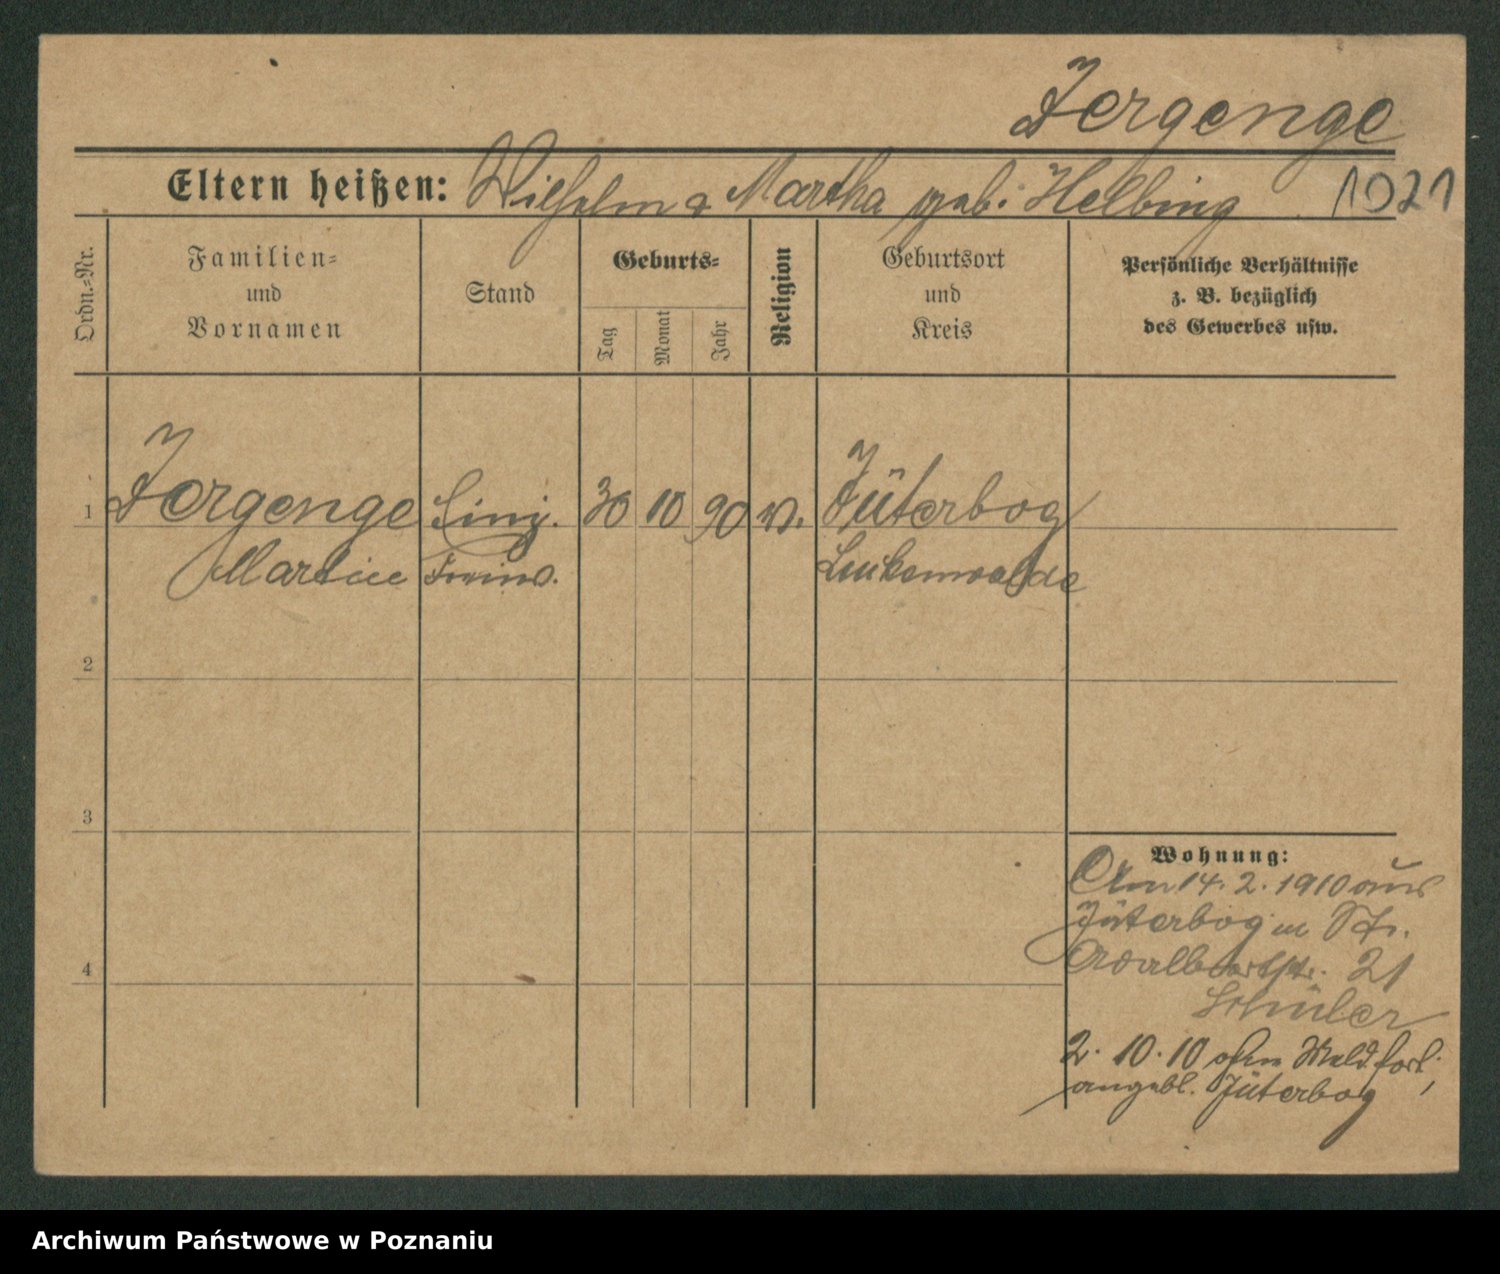 Jergenge
Eltern heißen: Wilhelm & Martha geb. Helbing 1021
Ordn.-Nr.
Familien-
und
Vornamen
Stand
Geburts-
Tag
Monat
Jahr
Religion
Geburtsort
und
Kreis
Persönliche Verhältnisse
z. B. bezüglich
des Gewerbes usw.
1 Jergenge Einj. 30 10 90 ev. Jüterbog
Martin Freiw. Luckenwalde
2
3
4
Wohnung:
Am 14. 2. 1910 aus
Jüterbog n St.
Adalbertstr. 21
Schüler
2. 10. 10 ohne Meld. fort,
angebl. Jüterbog
Archiwum Państwowe w Poznaniu